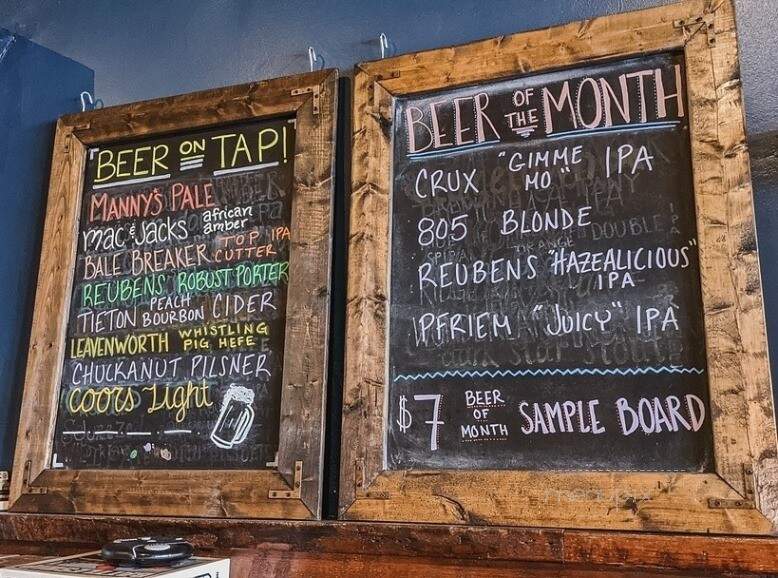 BEER ON TAP!
MANNY'S PALE
mac & Jacks african amber
BALE BREAKER TOP CUTTER IPA
REUBENS ROBUST PORTER
TIETON PEACH BOURBON CIDER
LEAVENWORTH WHISTLING PIG HEFE
CHUCKANUT PILSNER
Coors Light
BEER OF THE MONTH
CRUX "GIMME MO" IPA
805 BLONDE
REUBENS "HAZEALICIOUS" IPA
PFRIEM "JUICY" IPA
$7 BEER OF MONTH SAMPLE BOARD